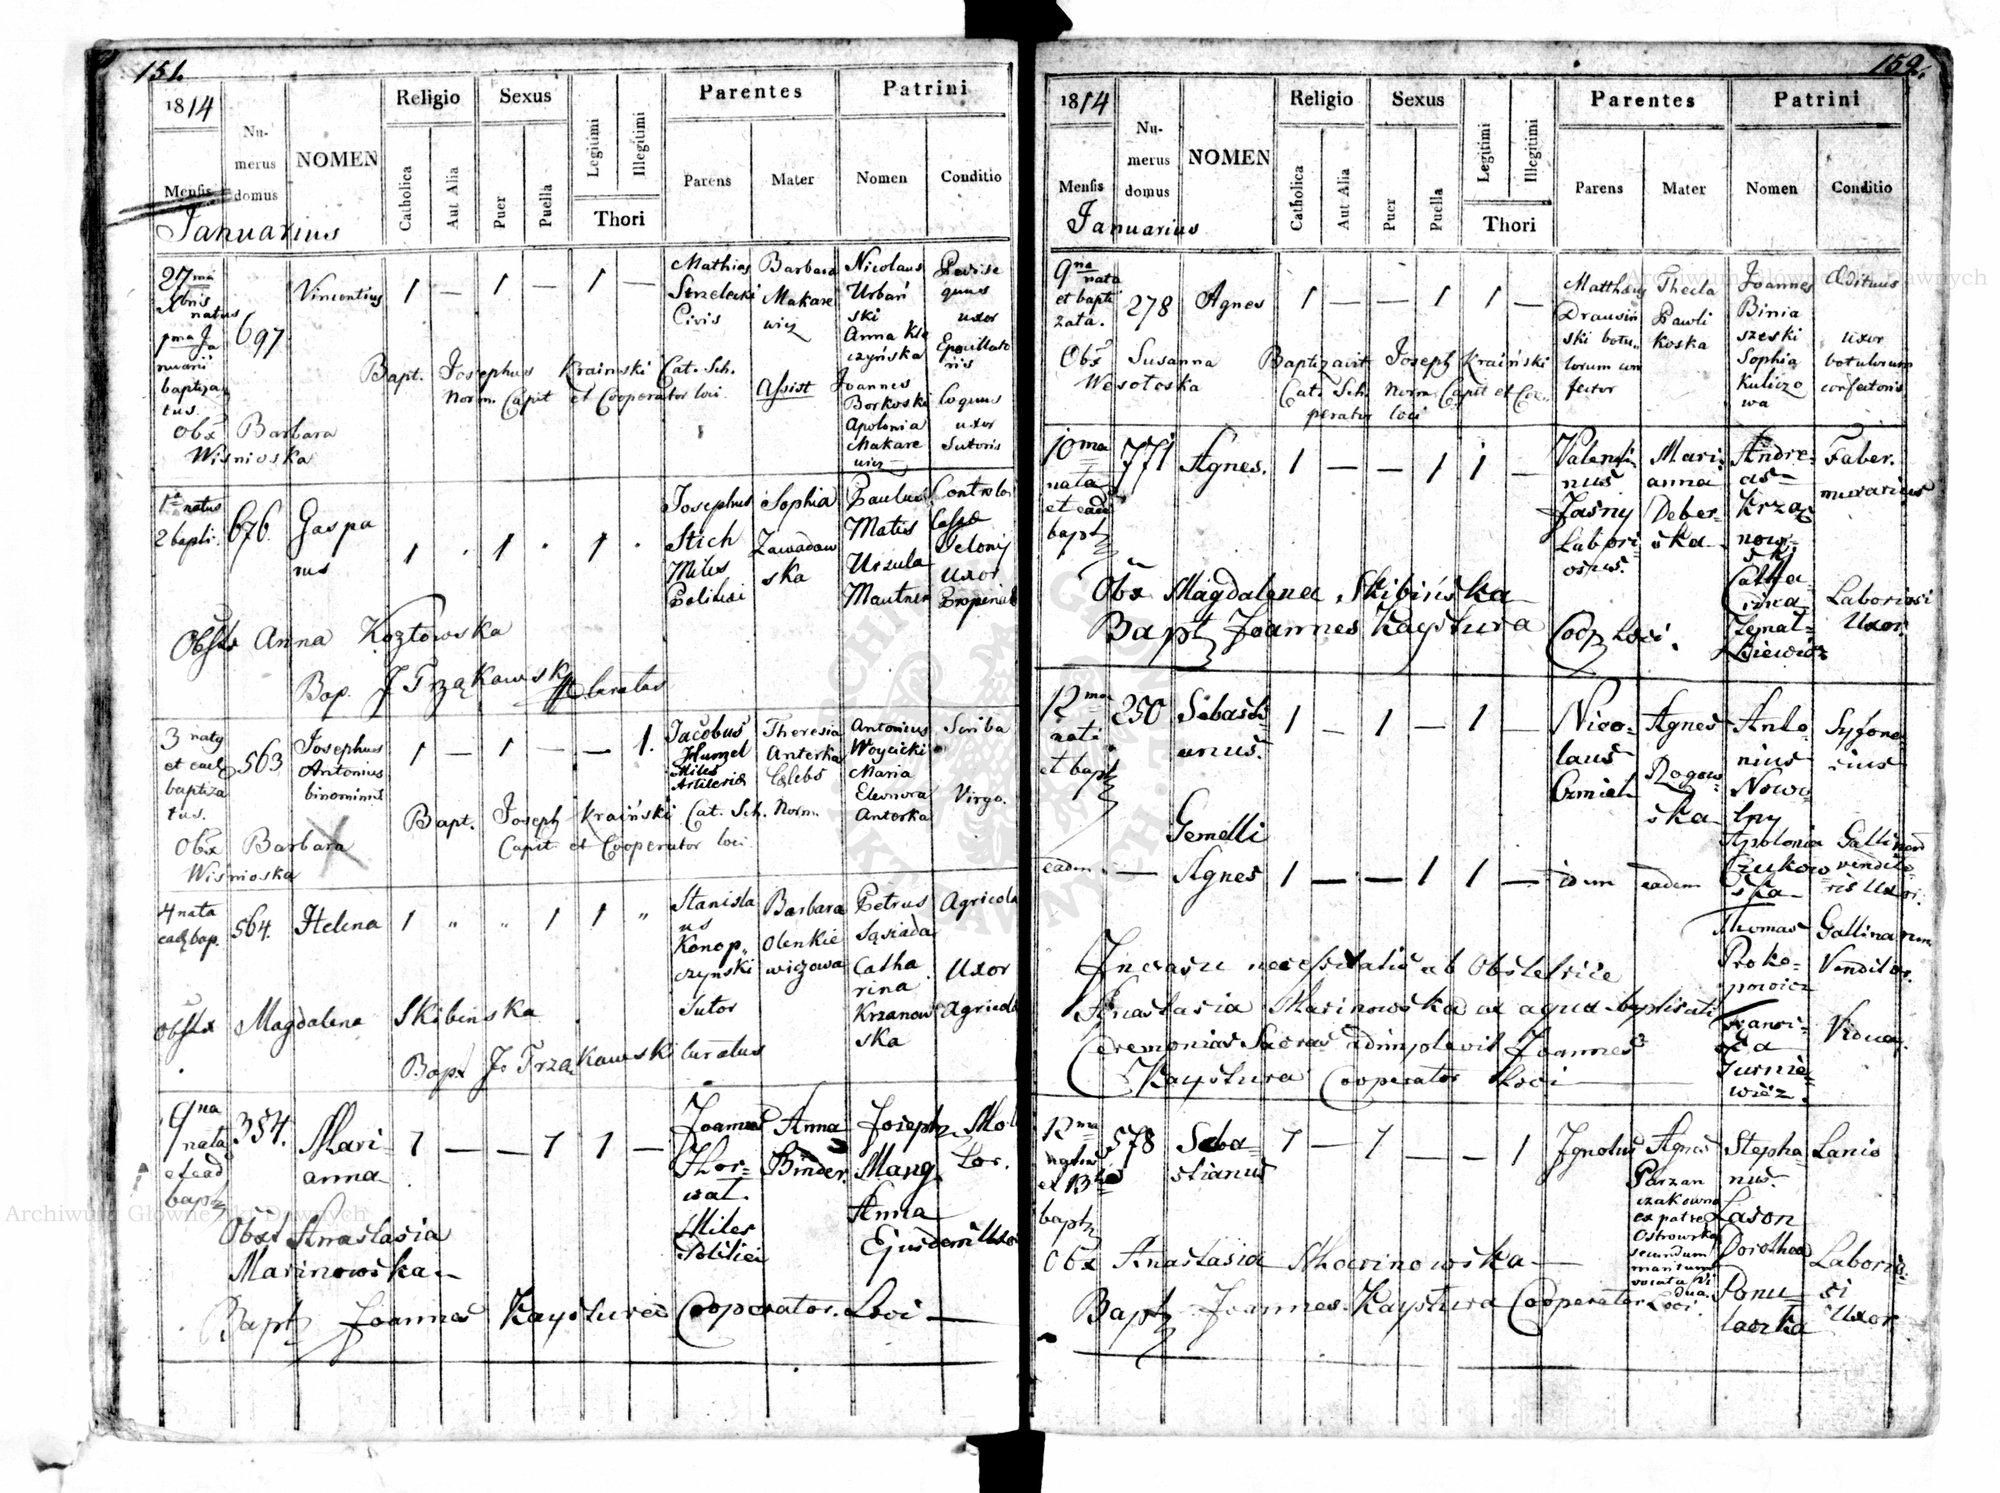 151.
1814
Mensis
Numerus domus
NOMEN
Religio
Catholica
Aut Alia
Sexus
Puer
Puella
Legitimi
Illegitimi
Thori
Parentes
Parens
Mater
Patrini
Nomen
Conditio
Januarius
27ma
natus
pma Ja
nuarii
baptiza
tus.
697
Vincentius
1 — 1 — 1 —
Mathias
Strzelecki
Civis
Barbara
Makare
wicz
Nicolaus
Urbań
ski
Anna Klu
czyńska
uxor
Bapt. Josephus Kraiński Cat. Sch.
Norm. Capit et Cooperator loci.
Assist
Joannes
Borkoski
Apolonia
Makare
wicz
Coquus
uxor
Sutoris
Obx Barbara
Wisnioska
1a natus
2 bapti.
676.
Gaspa
rus
1 . 1 . 1 .
Josephus
Stich
Miles
Politiei
Sophia
Zawadow
ska
Paulus
Matis
Urzula
Mautner
Uxor
Obstx Anna Kozłowska
Bap. J Trząkawski Curatus
3 natq
et ead
baptiza
tus.
563
Josephus
Antonius
binominis
1 — 1 — — 1.
Jacobus
Hunzel
Miles
Artileriæ
Theresia
Anterka
Celebs
Antonius
Woycicki
Maria
Eleonora
Anterka
Scriba
Virgo.
Bapt. Joseph Kraiński Cat. Sch. Norm.
Capit et Cooperator loci
Obx Barbara
Wisnioska
4 nata
ead bap.
564.
Helena
1 " " 1 1 "
Stanisla
us
Konop
czynski
Sutor
Barbara
Olenkie
wiczowa
Petrus
Sąsiada
Catha
rina
Krzanow
ska
Agricola
Uxor
Agricola
Obstx Magdalena Skibinska
Bapt J. Trząkawski Curatus
9na
nata
et ead
bapt
354.
Mari
anna
1 — — 1 1 —
Joannes
Hor=
wat
Miles
Politiei
Anna
Binder
Joseph
Mang
Anna
Ejusdem Uxor
Mol
tor.
Obst Anastasia
Marinowska
Bapt Joannes Kaystura Cooperator Loci —
152.
1814
Mensis
Numerus domus
NOMEN
Religio
Catholica
Aut Alia
Sexus
Puer
Puella
Legitimi
Illegitimi
Thori
Parentes
Parens
Mater
Patrini
Nomen
Conditio
Januarius
9na
nata
et bapti
zata.
278
Agnes
1 — — 1 1 —
Matthæus
Drausiń
ski botu
lorum con
fector
Thecla
Pawli
koska
Joannes
Binia
szeski
Sophia
Kuliczo
wa
Ædituus
uxor
botulorum
confectoris
Obx Susanna
Wesołoska
Baptizavit Joseph Kraiński
Cat. Sch. Norm. Capit et Coo
perator loci
10ma
nata
et ead
bapt
771
Agnes.
1 — — 1 1 —
Valenti
nus
Jasny
Labori
osus.
Mari
anna
Deber
ska
Andre
as
Krzą
now
ski
Catha
rina
Zemal
kiewicz
Faber.
murarius
Laboriosi
Uxor.
Obx Magdalena Skibińska
Bapt Joannes Kaystura Coop Loci.
12ma
nati
et bapt
250
Sebasti
anus.
1 — 1 — 1 —
Nico
laus
Czmiel
Agnes
Rogow
ska
Anto
nius
Nowo
lny
Apolonia
Czukow
ska
Gallinarum
vendito
ris Uxor.
Gemelli
eadem — Agnes 1 — — 1 1 — idem eadem
Thomas
Proko
powicz
Gallinarum
Venditor
Franci
sca
Jurnie
wicz.
Vidua.
In casu necessitatis ab Obstetrice
Anastasia Marinowska ex aqua baptisati
Ceremonias Sacras adimplevit Joannes
Kaystura Cooperator Loci
12ma
natus
et 13
bapt
578
Seba
stianus
1 — 1 — — 1
Ignotus
Agnes
Parzan
czakowna
ex patre
Ostrowska
secundum
maritum
vocata vi
dua.
Stepha
nus
Lason
Dorothea
Ponu
laczka
Lanio
Laborio
si
Uxor
Obx Anastasia Marinowska —
Bapt Joannes Kaystura Cooperator Loci.
Archiwum Główne Akt Dawnych
Archiwum Główne Akt Dawnych